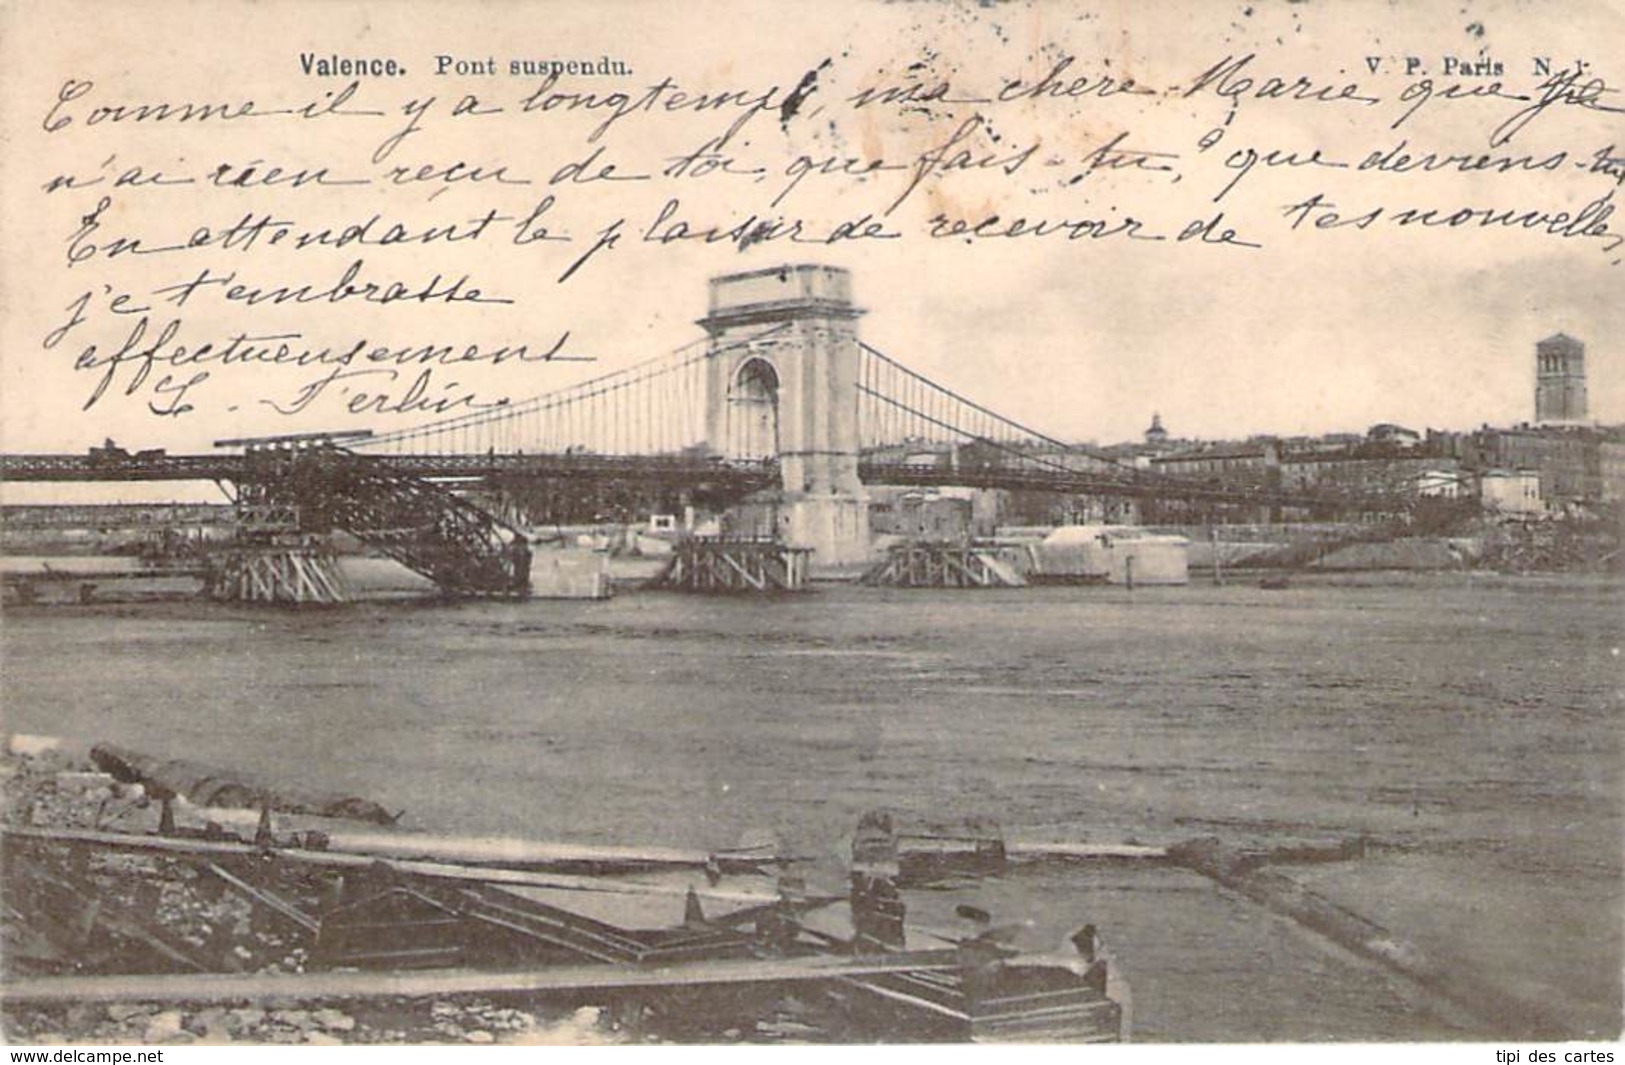 Valence. Pont suspendu.
V. P. Paris N. 1
Comme il y a longtemps, ma chère Marie, que je
n'ai rien reçu de toi, que fais-tu, que deviens-tu
En attendant le plaisir de recevoir de tes nouvelles,
je t'embrasse
affectueusement
L. Ferlin
www.delcampe.net
tipi des cartes